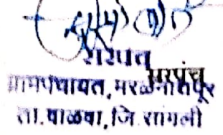 सरपंच
सरपंच
ग्रामपंचायत, मरळनाथपूर
ता. वाळवा, जि. सांगली